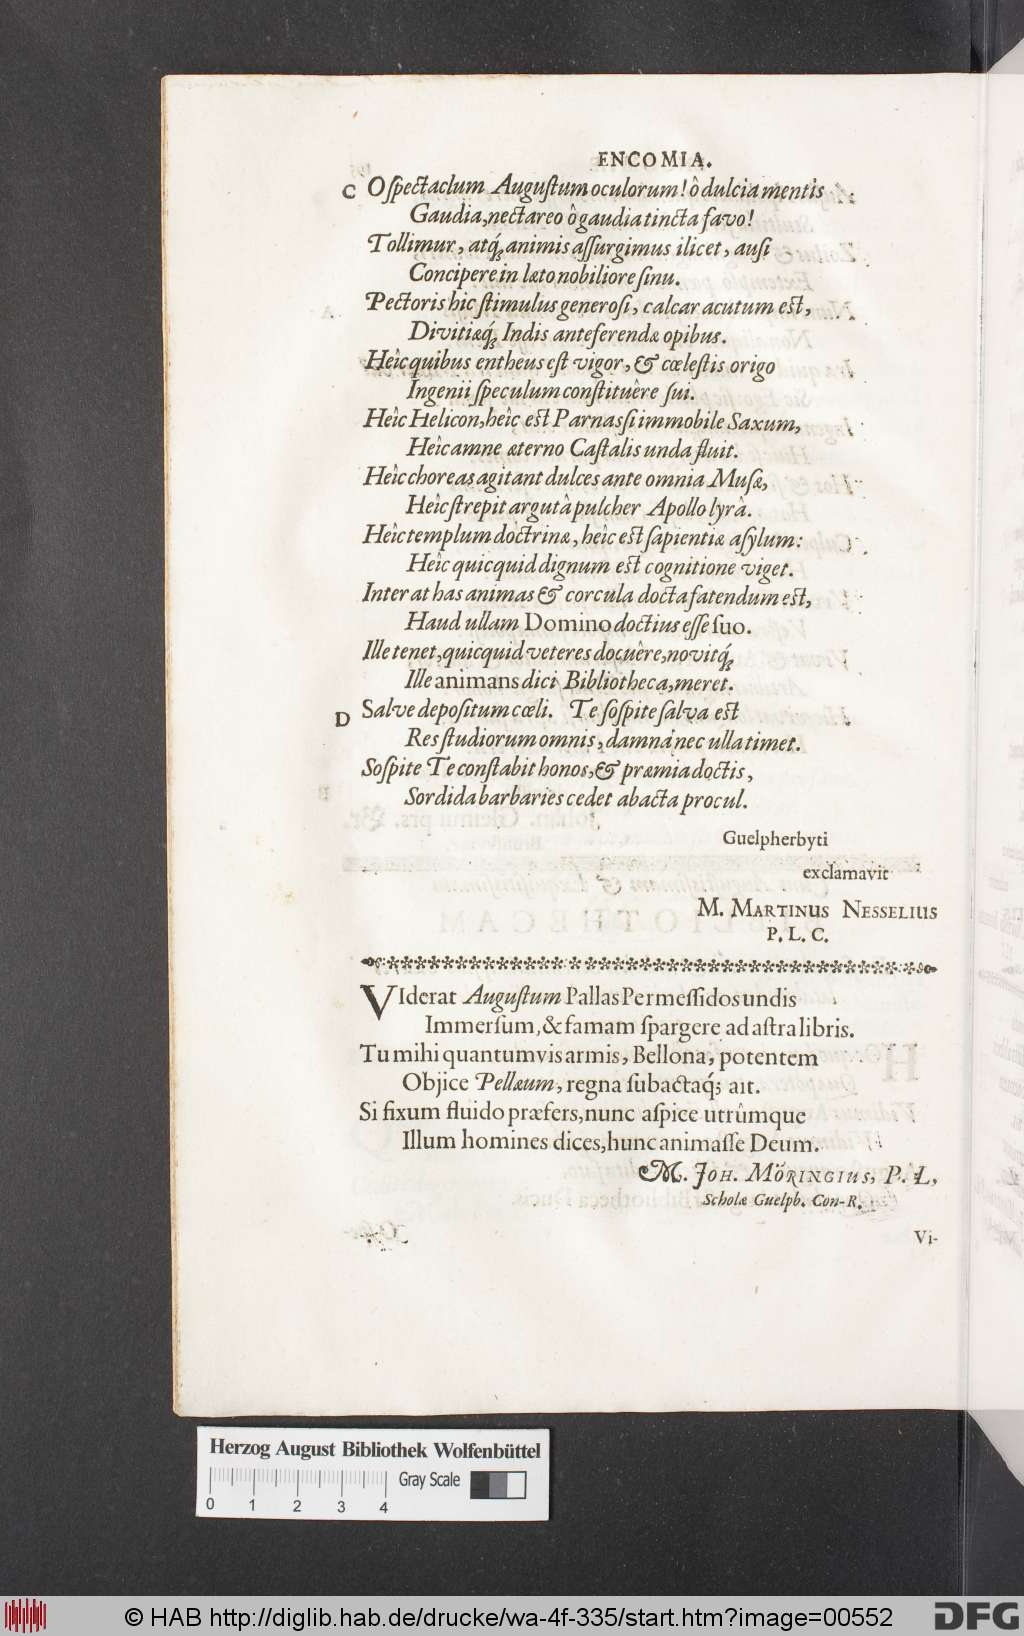 ENCOMIA.
C O spectaclum Augustum oculorum! ô dulcia mentis
Gaudia, nectareo ô gaudia tincta favo!
Tollimur, atq́; animis assurgimus ilicet, ausi
Concipere in læto nobiliore sinu.
Pectoris hic stimulus generosi, calcar acutum est,
Divitiæq́; Indis anteferendæ opibus.
Heîc quibus entheus est vigor, & cœlestis origo
Ingenii speculum constituêre sui.
Heîc Helicon, heîc est Parnassi immobile Saxum,
Heîc amne æterno Castalis unda fluit.
Heîc choreas agitant dulces ante omnia Musæ,
Heîc strepit argutâ pulcher Apollo lyrâ.
Heîc templum doctrinæ, heîc est sapientiæ asylum:
Heîc quicquid dignum est cognitione viget.
Inter at has animas & corcula docta fatendum est,
Haud ullam Domino doctius esse suo.
Ille tenet, quicquid veteres docuêre, novitq́;
Ille animans dici Bibliotheca, meret.
D Salve depositum cœli. Te sospite salva est
Res studiorum omnis, damna nec ulla timet.
Sospite Te constabit honos, & præmia doctis,
Sordida barbaries cedet abacta procul.
Guelpherbyti
exclamavit
M. MARTINUS NESSELIUS
P. L. C.
VIderat Augustum Pallas Permessidos undis
Immersum, & famam spargere ad astra libris.
Tu mihi quantumvis armis, Bellona, potentem
Objice Pellæum, regna subactaq́; ait.
Si fixum fluido præfers, nunc aspice utrûmque
Illum homines dices, hunc animasse Deum.
M. JOH. MÖRINGIUS, P. L,
Scholæ Guelpb. Con-R.
Vi-
Herzog August Bibliothek Wolfenbüttel
0 1 2 3 4 Gray Scale
© HAB http://diglib.hab.de/drucke/wa-4f-335/start.htm?image=00552 DFG